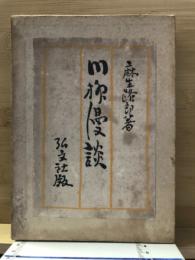 麻生路郎著
川柳漫談
弘文社版